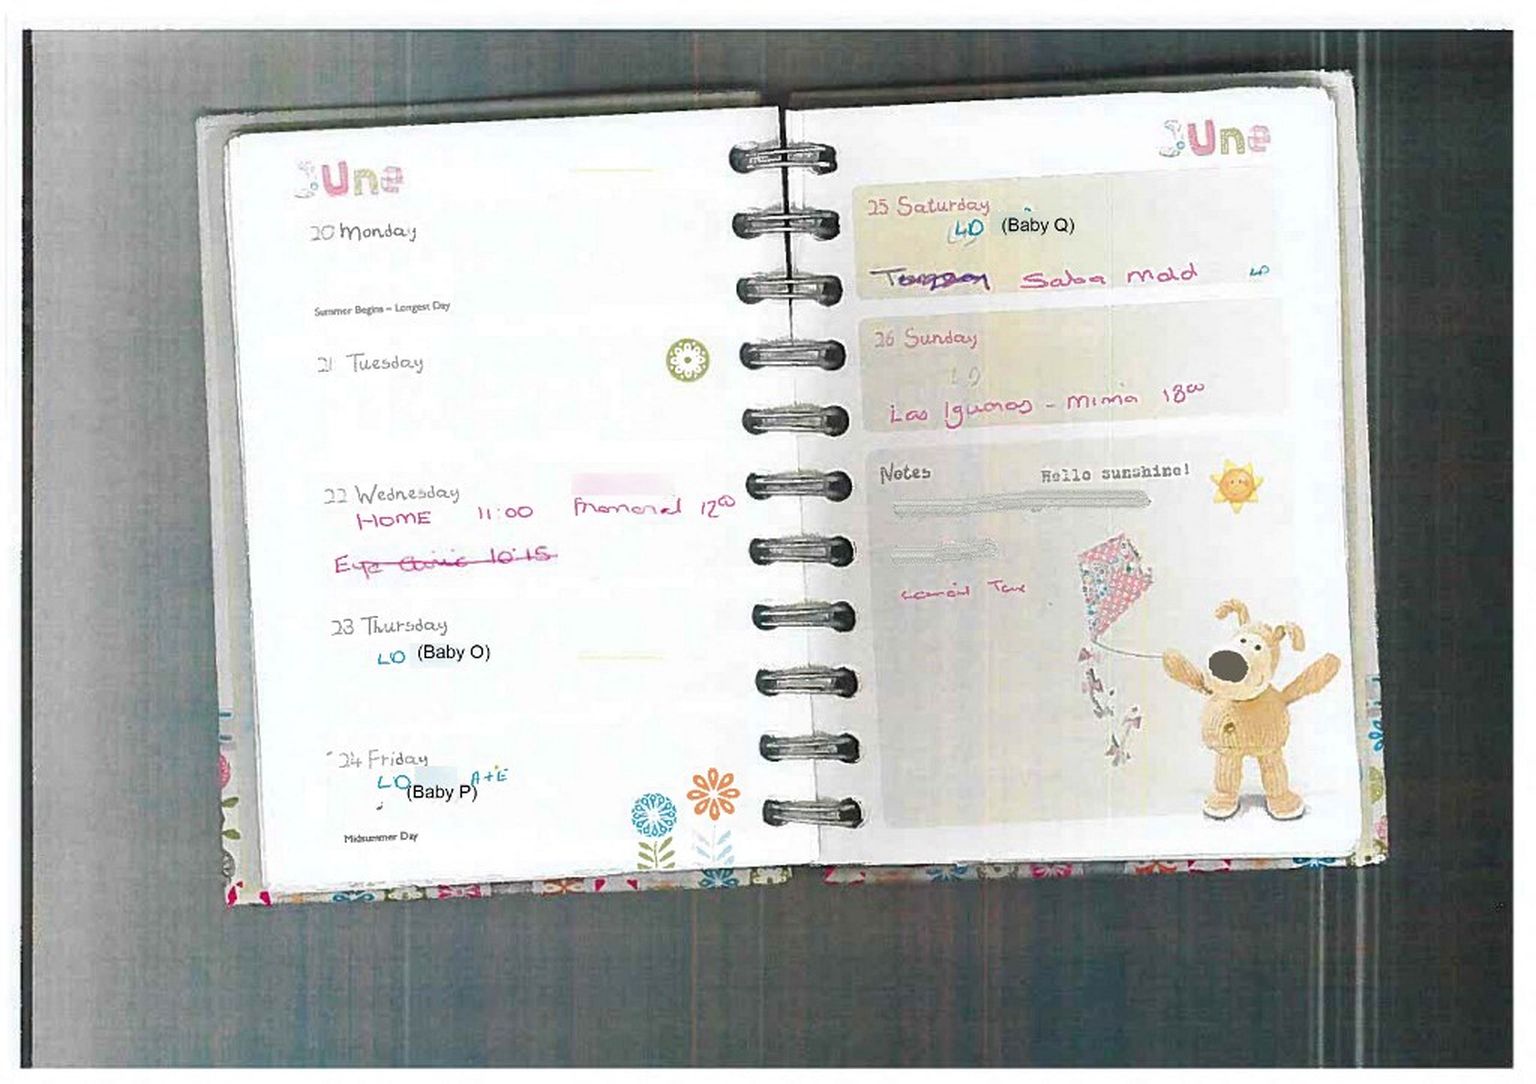 June
20 Monday
Summer Begins – Longest Day
21 Tuesday
22 Wednesday
HOME 11:00 12⁰⁰
Eye Clinic 10:15
23 Thursday
LD (Baby O)
24 Friday
LD A+E
(Baby P)
Midsummer Day
June
25 Saturday
LD (Baby Q)
Salsa Mold LD
26 Sunday
LD
Las Iguanas - Mina 18⁰⁰
Notes Hello sunshine!
Tax